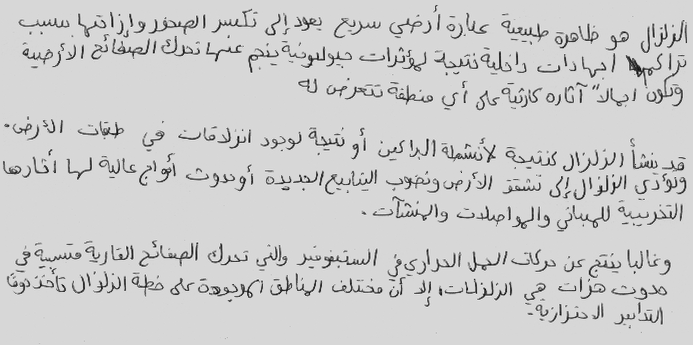 الزلزال هو ظاهرة طبيعية عبارة أرضي سريع يعود إلى تكسر الصخور وإزاحتها بسبب
تراكم اجهادات داخلية نتيجة لمؤثرات جيولوجية ينجم عنها تحرك الصفائح الأرضية
وتكون اجمالاً آثاره كارثية على أي منطقة تتعرض له
قد ينشأ الزلزال كنتيجة لأنشطة البراكين أو نتيجة لوجود انزلاقات في طبقات الأرض.
وتؤدي الزلزال إلى تشقق الأرض ونضوب الينابيع الجديدة أو حدوث أمواج عالية لها أثارها
التخريبية للمباني والمواصلات والمنشآت.
وغالبا ينتج عن حركات الحمل الحراري في الستينوفير والتي تحرك الصفائح القارية متسببة في
حدوث هزات هي الزلزلات، إلا أن مختلف المناطق الموجودة على خطة الزلزال تأخذ دومًا
التدابير الاحترازية.